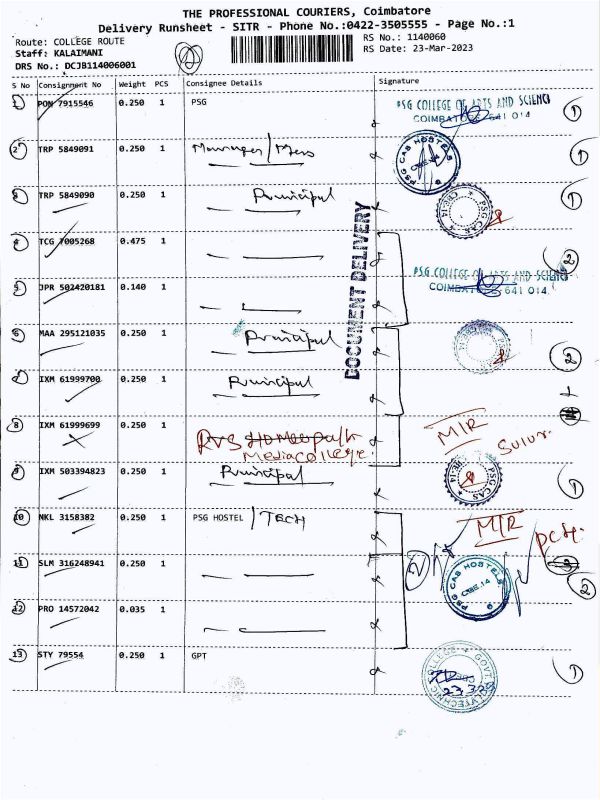 THE PROFESSIONAL COURIERS, Coimbatore
Delivery Runsheet - SITR - Phone No.:0422-3505555 - Page No.:1
Route: COLLEGE ROUTE
RS No.: 1140060
Staff: KALAIMANI
RS Date: 23-Mar-2023
DRS No.: DCJB114006001
S No Consignment No Weight PCS Consignee Details Signature
1 PON 7915546 0.250 1 PSG
PSG COLLEGE OF ARTS AND SCIENCE
COIMBATORE 641 014
1
2 TRP 5849091 0.250 1 Manager/Mess
PSG CAS HOSTELS
CBE.14
1
3 TRP 5849090 0.250 1 Principal
PSG CAS
CBE-14
1
DOCUMENT DELIVERY
4 TCG 7005268 0.475 1
PSG COLLEGE OF ARTS AND SCIENCE
COIMBATORE 641 014
2
5 JPR 502420181 0.140 1
6 MAA 295121035 0.250 1 Principal
2
7 IXM 61999700 0.250 1 Principal
8 IXM 61999699 0.250 1 RVS Homeopath
Medical college
M/R
Sulur
9 IXM 503394823 0.250 1 Principal
PSG CAS
CBE-14
1
10 NKL 3158382 0.250 1 PSG HOSTEL / TECH
M/R
11 SLM 316248941 0.250 1
2
PSG CAS HOSTELS
CBE.14
3
2
12 PRO 14572042 0.035 1
13 STY 79554 0.250 1 GPT
GOVT. POLYTECHNIC COLLEGE
23.3.23
1